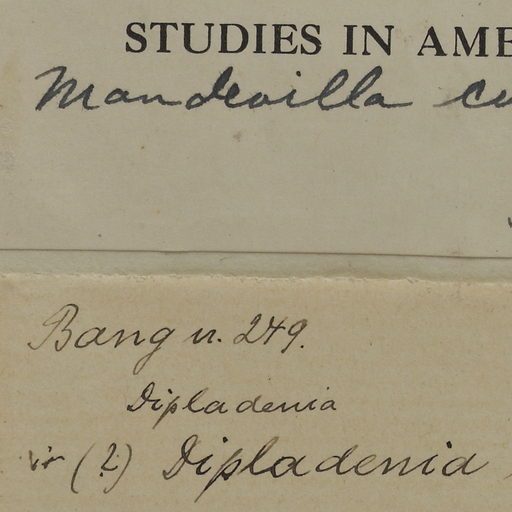 STUDIES IN AME
Mandevilla cu
Bang n. 249.
Dipladenia
(?) Dipladenia